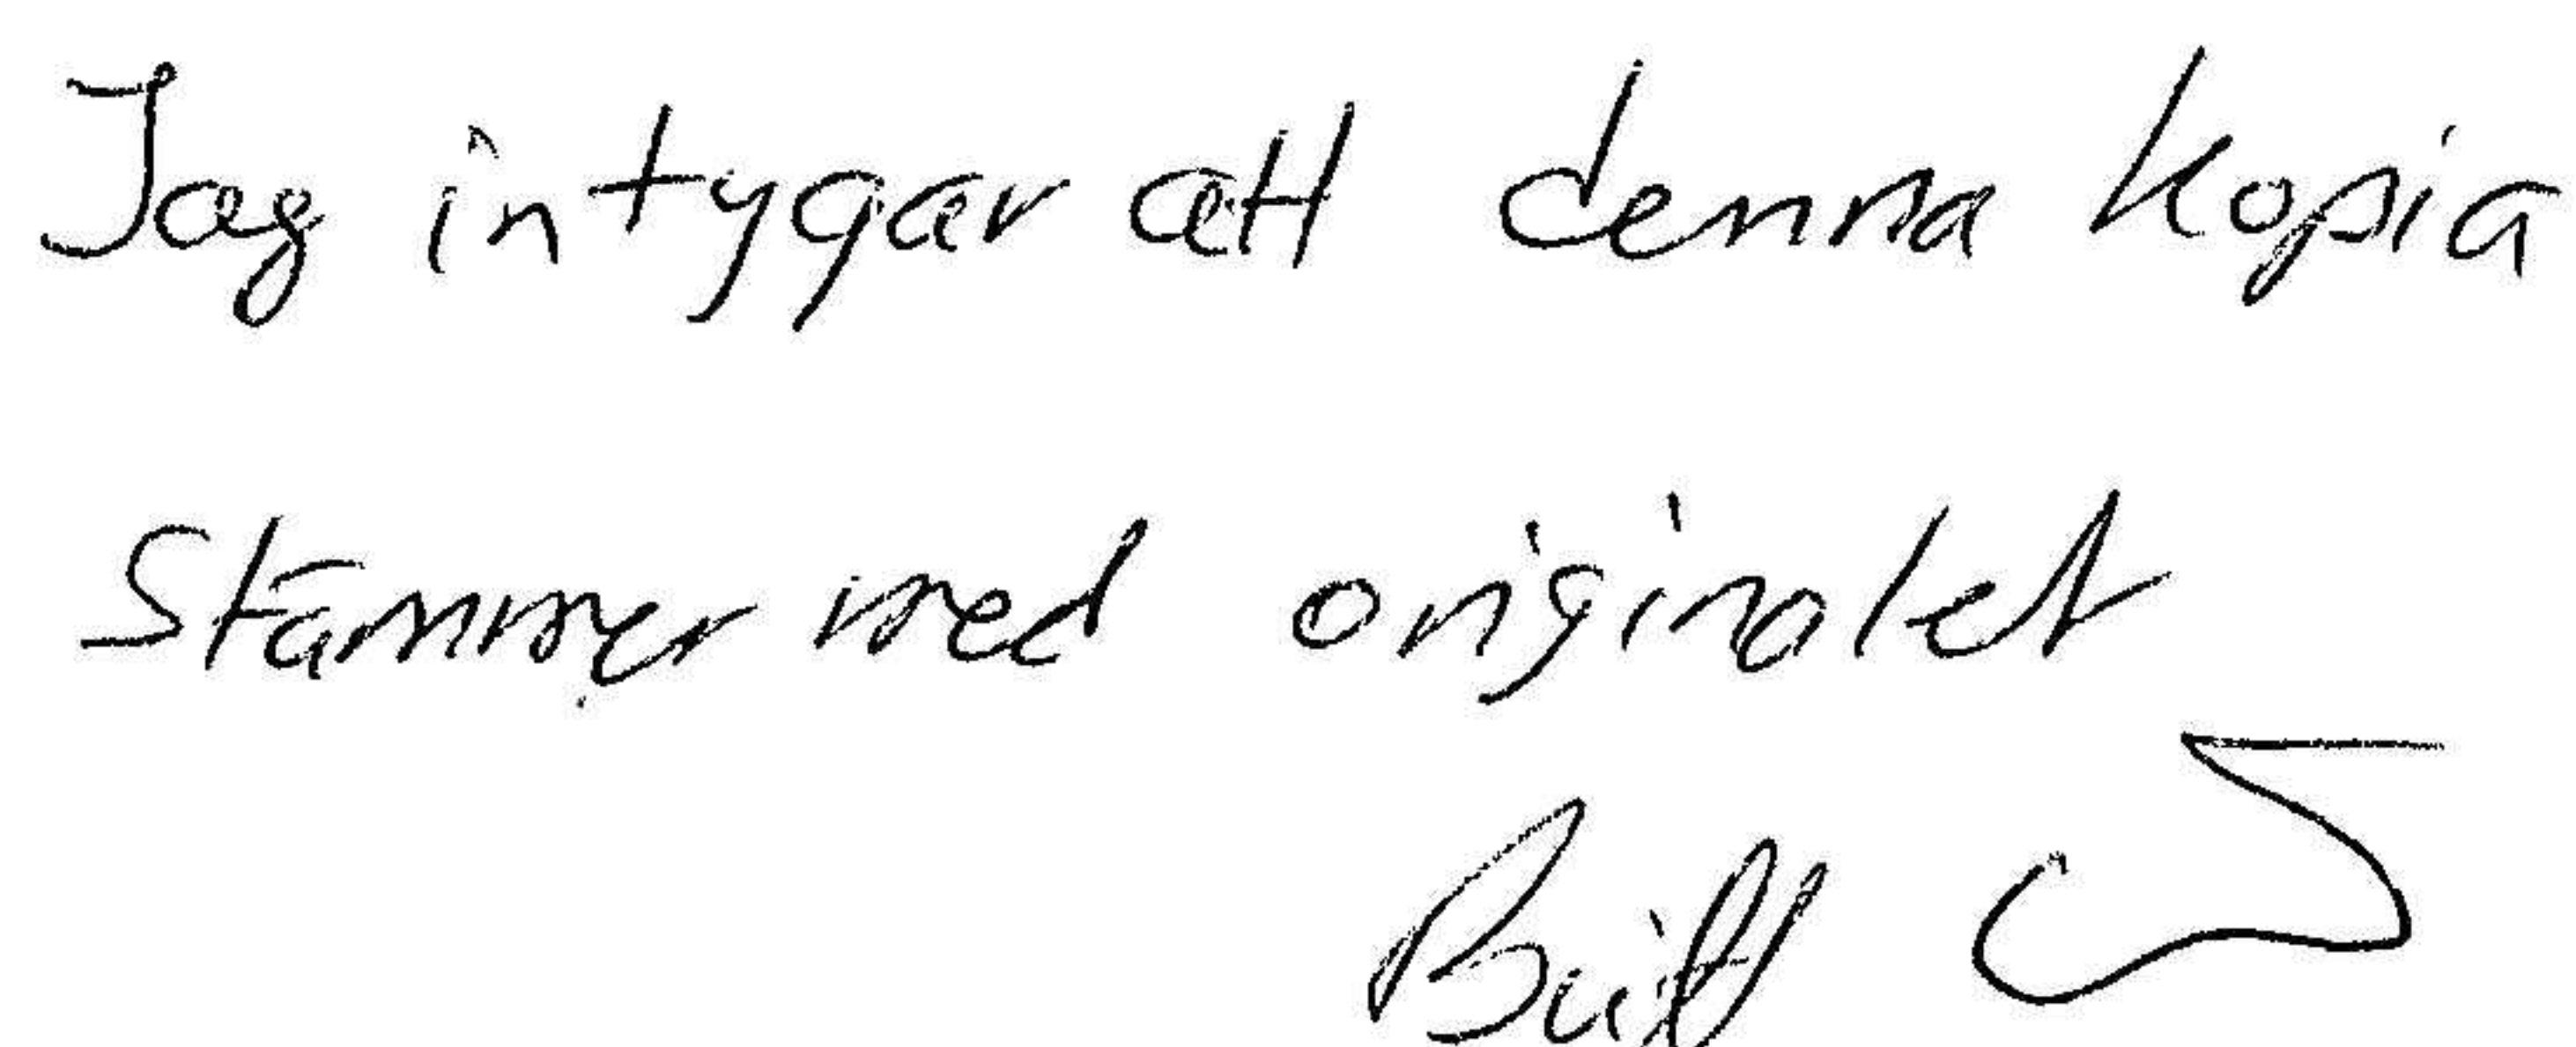 Jag intygar att denna kopia
stämmer med originalet
Britt